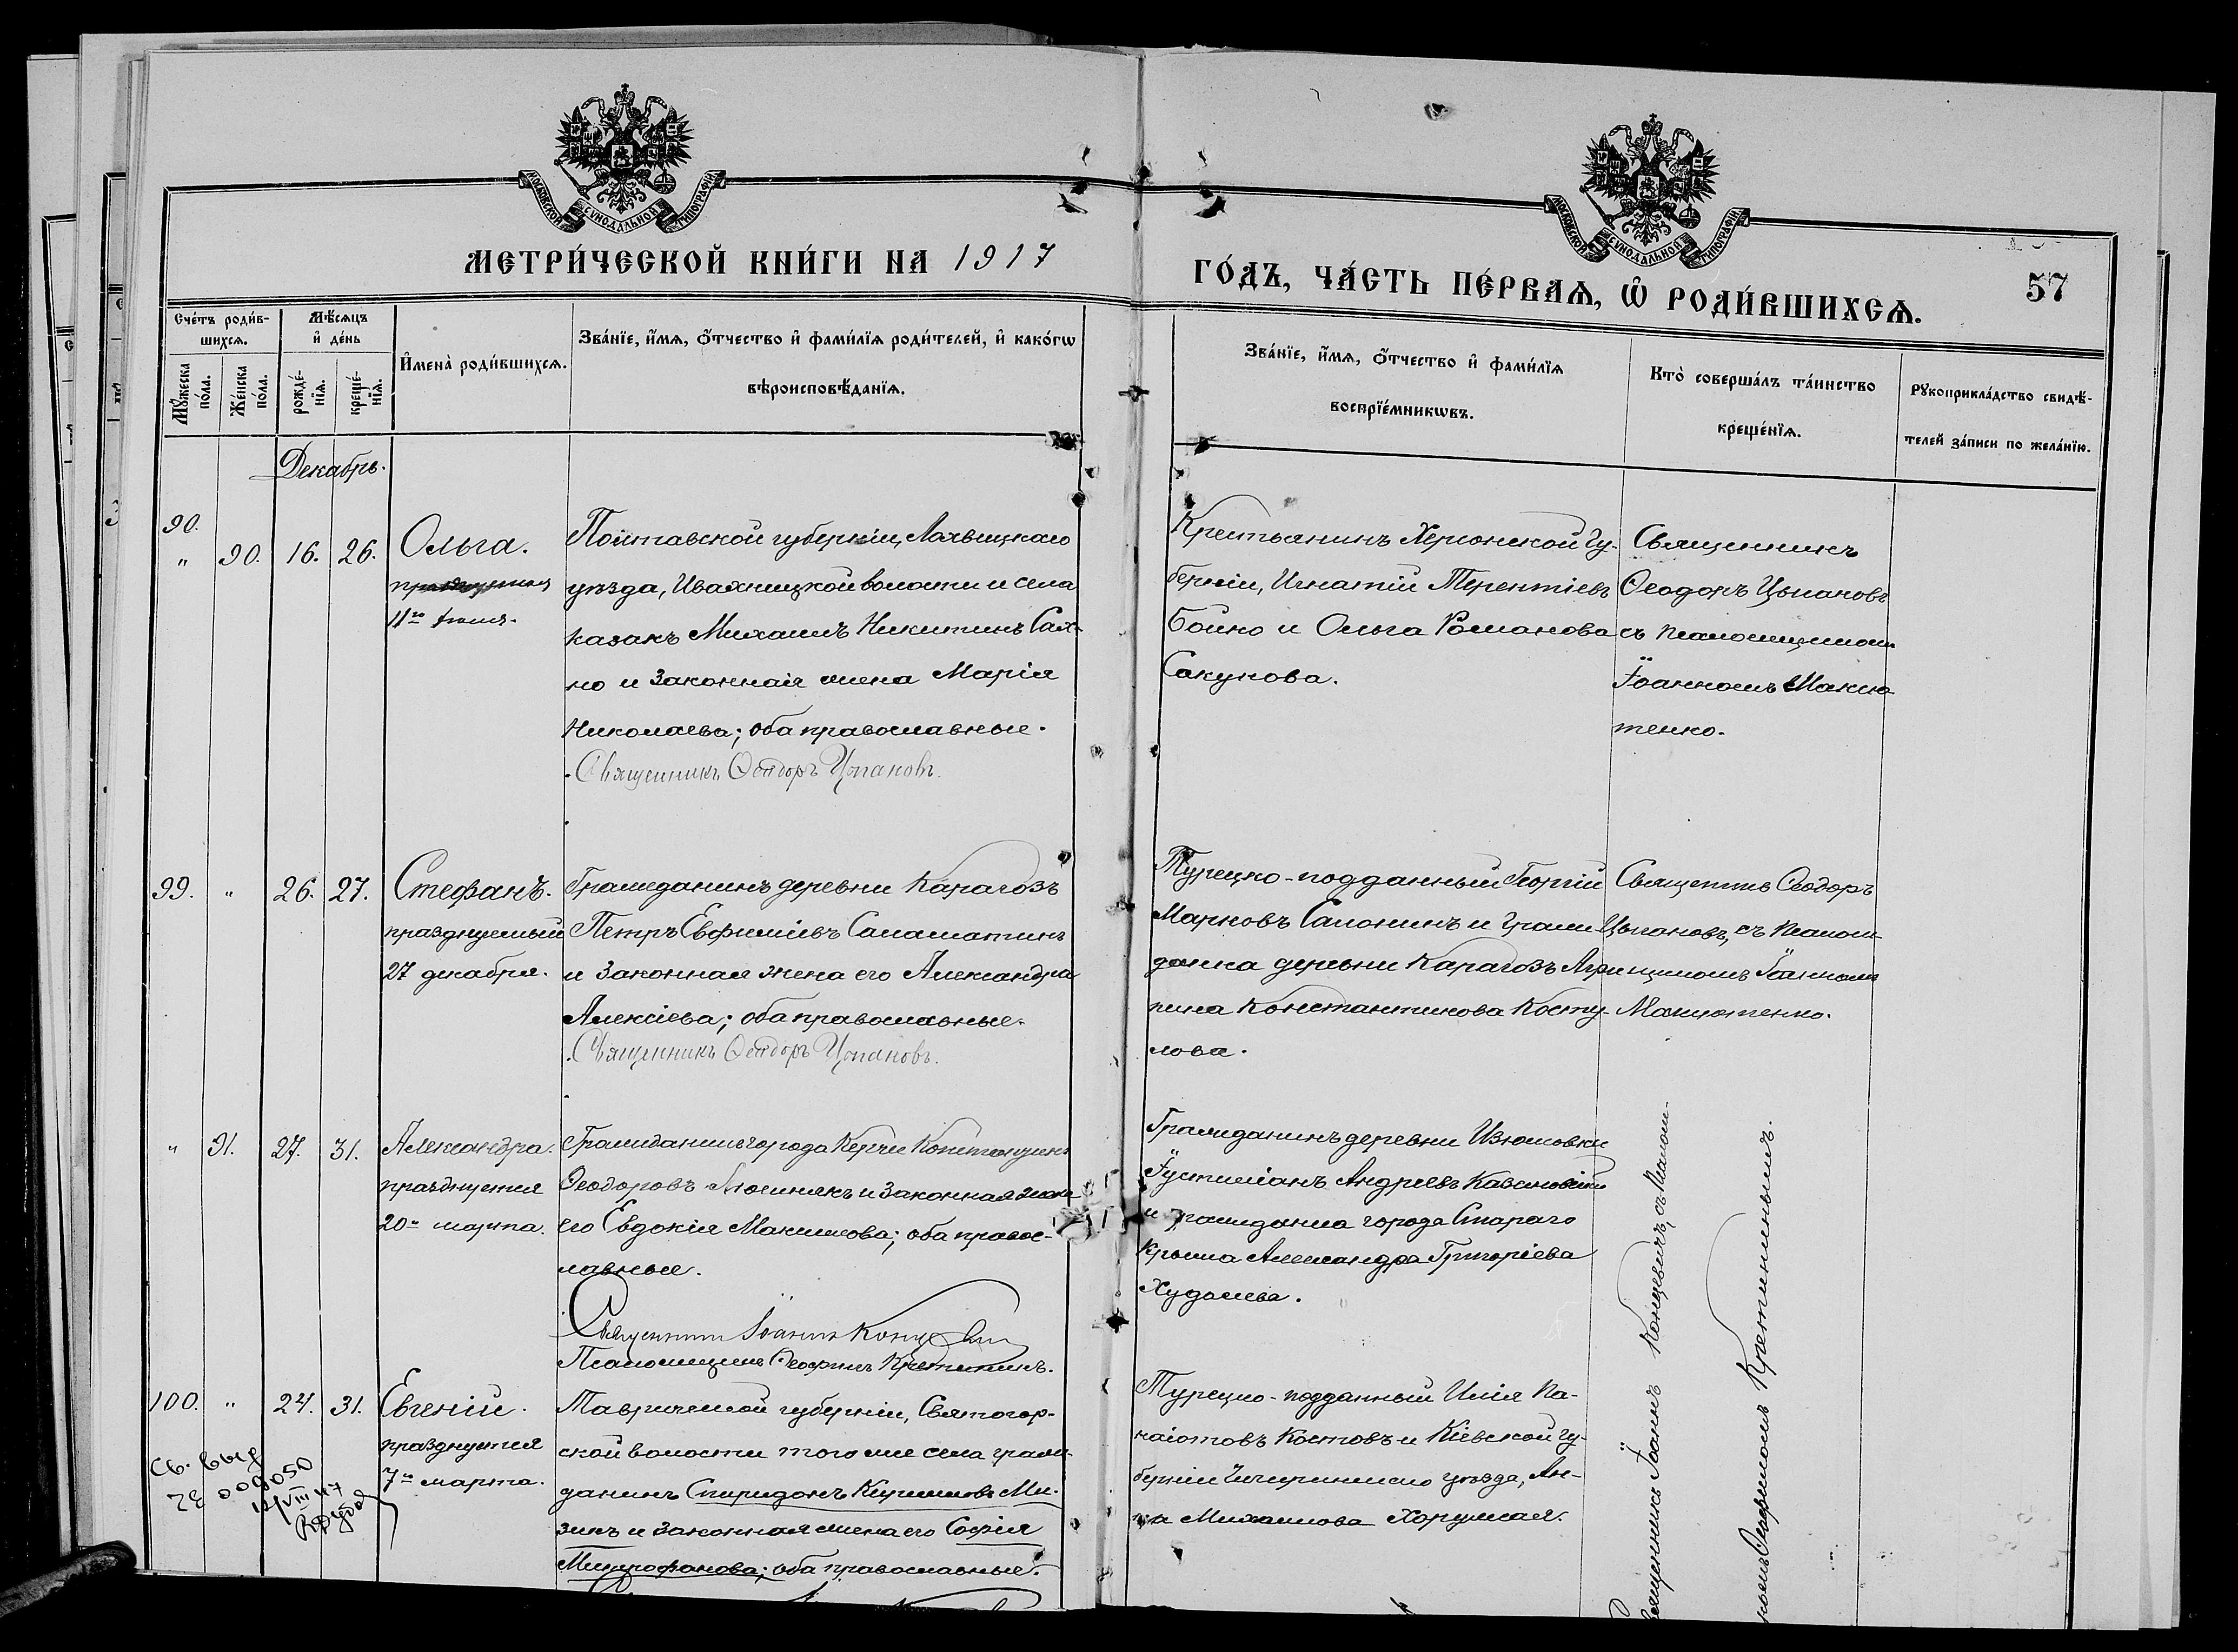 МОСКОВСКОЙ СѴНОДАЛЬНОЙ ТИПОГРАФІИ
МОСКОВСКОЙ СѴНОДАЛЬНОЙ ТИПОГРАФІИ
МЕТРИ́ЧЕСКОЙ КНИ́ГИ НА 1917
ГО́ДЪ, ЧА́СТЬ ПЕ́РВАѦ, Ѡ҆ РОДИ́ВШИХСѦ.
57
Сче́тъ роди́в-
шихсѧ.
Мꙋ́жеска по́ла.
Же́нска по́ла.
Мѣ́сѧцъ
и҆ де́нь
рожде́-
нїѧ.
креще́-
нїѧ.
И҆мена̀ роди́вшихсѧ.
Зва́нїе, и҆́мѧ, ѻ҆́тчество и҆ фами́лїѧ роди́телей, и҆ како́гѡ
вѣроисповѣ́данїѧ.
Зва́нїе, и҆́мѧ, ѻ҆́тчество и҆ фами́лїѧ
воспрїе́мникѡвъ.
Кто̀ соверша́лъ та́инство
креще́нїѧ.
Рꙋкоприкла́дство свидѣ́-
телей за́писи по жела́нїю.
Декабрь.
90.
" 90. 16. 26.
Ольга.
празднуемая
11го Іюля.
Полтавской губерніи, Лохвицкаго
уѣзда, Ивахницкой волости и села
казакъ Михаилъ Никитинъ Сах-
но и законная жена Марія
Николаева; оба православные.
Священникъ Ѳеодоръ Цыпановъ.
Крестьянинъ Херсонской гу-
берніи, Игнатій Терентіевъ
Бойко и Ольга Романова
Сакунова.
Священникъ
Ѳеодоръ Цыпановъ
съ псаломщикомъ
Іоанномъ Максю-
тенко.
99. " 26. 27.
Стефанъ.
празднуемый
27 декабря.
Гражданинъ деревни Карагозъ
Петръ Евфиміевъ Саламатинъ
и законная жена его Александра
Алексіева; оба православные.
Священникъ Ѳеодоръ Цыпановъ.
Турецко-подданный Георгій
Марковъ Самонинъ и граж-
данка деревни Карагозъ Агрип-
пина Константинова Косту-
лова.
Священникъ Ѳеодоръ
Цыпановъ, съ псалом-
щикомъ Іоанномъ
Максютенко.
" 91. 27. 31.
Александра.
празднуется
20го марта.
Гражданинъ города Керчи Константинъ
Ѳеодоровъ и законная жена
его Евдокія Максимова; оба правос-
лавные.
Священникъ Іоаннъ Концевичъ
Псаломщикъ Ѳеофилъ Кретининъ.
Гражданинъ деревни Изюмовки
Іустиніанъ Андреевъ Казановскій
и гражданка города Стараго
Крыма Александра Григоріева
Худолеева.
Священникъ Іоаннъ Концевичъ, съ псалом-
щикомъ Ѳеофиломъ Кретининымъ.
100. " 24. 31.
Евгеній.
празднуется
7го марта.
Св. выд
ЧЕ 008050
12/VIII 47
Таврической губерніи, Святогор-
ской волости того же села граж-
данинъ Спиридонъ Кирилловъ Ми-
зинъ и законная жена его Софія
Митрофанова; оба православные.
Турецко-подданный Илія Па-
наіотовъ Костовъ и Кіевской гу-
берніи Чигиринскаго уѣзда, Ан-
на Михаилова Хоружая.